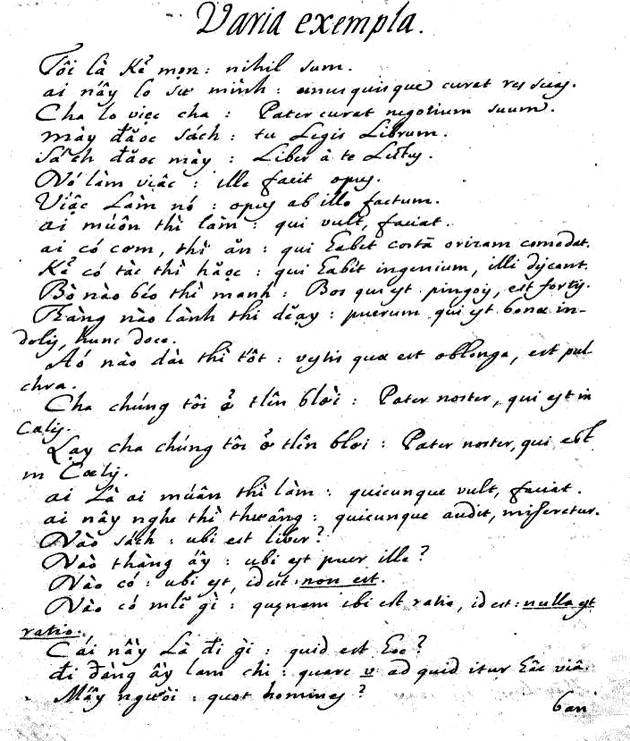 Varia exempla.
Tôi là kẻ mọn: nihil sum.
ai nấy lo sự mình: unusquisque curat res suas.
Cha lo việc cha: Pater curat negotium suum.
mày đăọc sách: tu Legis Librum.
sách đăọc mày: Liber à te Lectus.
Nó làm viâc: ille facit opus.
Viâc Làm nó: opus ab illo factum.
ai muấn thì làm: qui vult, faciat.
ai có cơm, thì ăn: qui habet coctã orizam comedat.
Kẻ có tàc thì hăọc: qui habet ingenium, illi discant.
Bò nào béo thì manh: Bos qui est pinguis, est fortis.
Thàng nào lành thì dĕạy: puerum qui est bonæ in-
dolis, hunc doce.
Aó nào dài thì tốt: vestis quæ est oblonga, est pul
chra.
Cha chúng tôi ở tlên blời: Pater noster, qui est in
Cælis.
Lạy cha chúng tôi ở tlên blơi: Pater noster, qui est
in Cælis.
ai Là ai muấn thì làm: quicunque vult, faciat.
ai nấy nghe thì thương: quicunque audit, miseretur.
Nào sách: ubi est liber?
Nào thàng ấy: ubi est puer ille?
Nào có: ubi est, id est: non est.
Nào có mlẽ gì: quænam ibi est ratio, id est: nulla est
ratio.
Cái này Là đi gì: quid est hoc?
đi đàng ấy lam chi: quare v ad quid itur hâc viâ.
Mấy người: quot homines?
ban